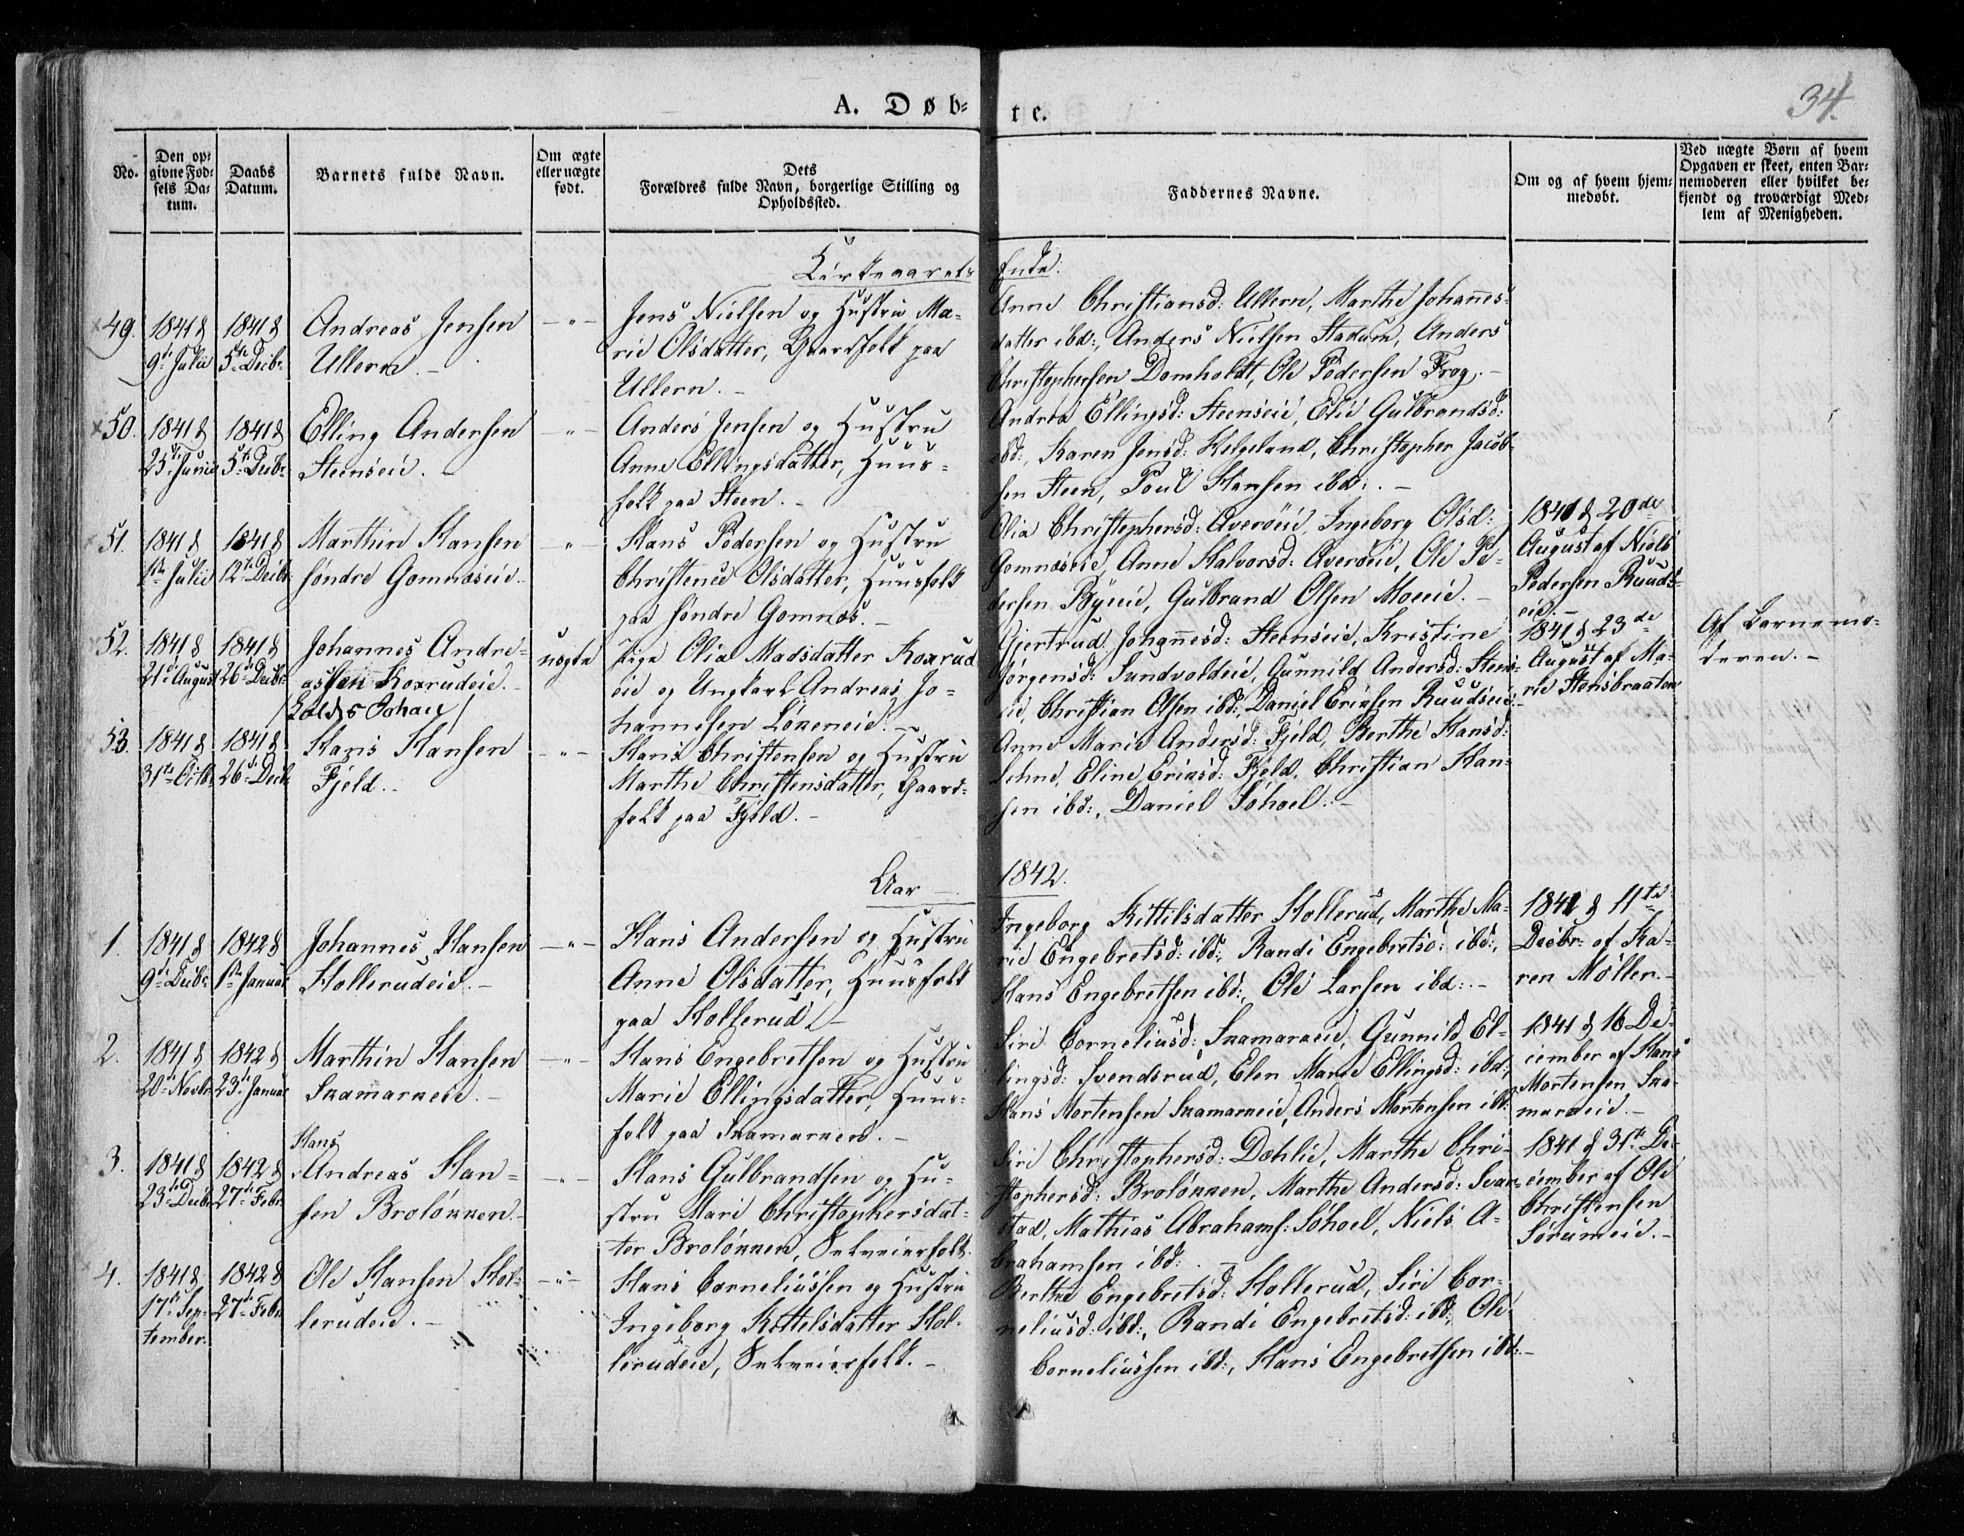 34.
A. Døb-
te.
No.
Den op-
givne Fød-
sels Da-
tum.
Daabs
Datum.
Barnets fulde Navn.
Om ægte
eller uægte
født.
Dets
Forældres fulde Navn, borgerlige Stilling og
Opholdssted.
Faddernes Navne.
Om og af hvem hjem-
medøbt.
Ved uægte Børn af hvem
Opgaven er skeet, enten Bar-
nemoderen eller hvilket be-
kjendt og troværdigt Med-
lem af Menigheden.
Kirkeaarets
Ende.
49.
1841 d
9de Julii
1841 d
5te Decbr
Andreas Jensen
Ullern. -
- " -
Jens Nielsen og Hustru Ma-
rie Olsdatter, Gaardfolk paa
Ullern. -
Anne Christiansd: Ullern, Marthe Johannes-
datter ibd:, Anders Nielsen Stadum, Anders
Christophersen Domholdt, Ole Pedersen Frog. -
50.
1841 d
25de Junii
1841 d
5te Decbr
Elling Andersen
Steenseie. -
- " -
Anders Jensen og Hustru
Anne Ellingsdatter, Huus-
folk paa Steen. -
Andrea Ellingsd: Steenseie, Elie Gulbrandsd:
ibd:, Karen Jensd: Helgeland, Christopher Jacob-
sen Steen, Poul Hansen ibd: . -
51.
1841 d
1ste Julii
1841 d
12te Decbr
Marthin Hansen
søndre Gomnæseie.
- " -
Hans Pedersen og Hustru
Christense Olsdatter, Huusfolk
paa søndre Gomnæs. -
Olia Christophersd: Averøeie, Ingeborg Olsd:
Gomnæseie, Anne Halvorsd: Averøeie, Ole Pe-
dersen Byeeie, Gulbrand Olsen Moeeie. -
1841 d 20de
August af Niels
Pedersen Ruuds-
eie. -
52.
1841 d
21de August
1841 d
26de Decbr
Johannes Andre-
assen Roxrudeie. -
/kaldes Johan/
uægte
Pige Olia Madsdatter Roxrud
eie og Ungkarl Andreas Jo-
hannesen Løkeneie. -
Gjertrud Johannesd: Steenseie, Kristine
Jørgensd: Sundvoldeie, Gunnild Andersd: Steens-
eie, Christian Olsen ibd:, Daniel Ericksen Ruudseie. -
1841 d 23de
August af Ma-
rte Steensbraaten
Af Barnemo-
deren. -
53.
1841 d
31te Octbr
1841 d
26de Decbr
Hans Hansen
Fjeld. -
- " -
Hans Christensen og Hustru
Marthe Christensdatter, Gaard-
folk paa Fjeld. -
Anne Marie Andersd: Fjeld, Berthe Hansd:
Lehne, Eline Ericksd: Fjeld, Christian Han-
sen ibd:, Daniel Søhoel: -
Aar -
1842.
1.
1841 d
9de Decbr
1842 d
1ste Januar
Johannes Hansen
Hollerudeie. -
- " -
Hans Andersen og Hustru
Anne Olsdatter, Huusfolk
paa Hollerud. -
Ingeborg Kittilsdatter Hollerud, Marthe Ma-
rie Engebretsd: ibd:, Randi Engebretsd: ibd:,
Hans Engebretsen ibd:, Ole Larsen ibd: . -
1841 d 11te
Decbr. af Ka-
ren Møller. -
2.
1841 d
20de Novbr
1842 d
23de Januar
Marthin Hansen
Skamarkeie. -
- " -
Hans Engebretsen og Hustru
Marie Ellingsdatter, Huus-
folk paa Skamarken. -
Siri Corneliusd: Skamarkeie, Gunnild El-
lingsd: Svendsrud, Elen Marie Ellingsd: ibd:,
Hans Mortensen Skamarkeie, Anders Mortensen ibd:
1841 d 16 De-
cember af Hans
Mortensen Ska-
markeie. -
3.
1841 d
23de Decbr
1842 d
27de Febr.
Hans
Andreas Han-
sen Broløkken. -
- " -
Hans Gulbrandsen og Hu-
stru Mari Christophersdat-
ter Broløkken, Selveierfolk.
Siri Christophersd: Dæhlie, Marthe Chri-
stophersd: Broløkken, Marthe Andersd: Svar-
stad, Mathias Abrahams: Søhoel, Niels A-
brahamsen ibd: . -
1841 d 31te De-
cember af Ole
Christensen
Sørumeie. -
4.
1841 d
17de Sep-
tember.
1842 d
27de Febr
Ole Hansen Hol-
lerudeie. -
- " -
Hans Corneliussen og Hustru
Ingeborg Kittelsdatter Hol-
lerudeie, Selveierfolk. -
Berthe Engebretsd: Hollerud, Siri Cor-
neliusd: ibd:, Randi Engebretsd: ibd:, Ole
Corneliussen ibd:, Hans Engebretsen ibd: -